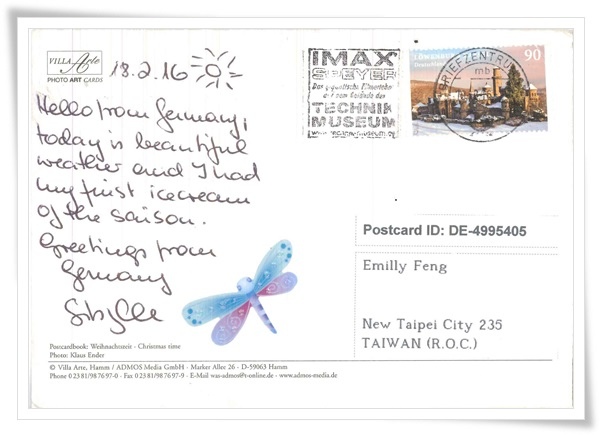 VILLA Arte
PHOTO ART CARDS
18.2.16
Hello from Germany,
today is beautiful
weather and I had
my first icecream
of the saison.
Greetings from
Germany
Sibylle
IMAX
SPEYER
Das gigantische Filmerlebnis
auf dem Gelände des
TECHNIK
MUSEUM
BRIEFZENTRUM
mb
LÖWENBURG
Deutschland
90
Postcard ID: DE-4995405
Emilly Feng
New Taipei City 235
TAIWAN (R.O.C.)
Postcardbook: Weihnachtszeit - Christmas time
Photo: Klaus Ender
© Villa Arte, Hamm / ADMOS Media GmbH · Marker Allee 26 · D-59063 Hamm
Phone 0 23 81/98 76 97-0 · Fax 0 23 81/98 76 97-9 · E-Mail was-admos@t-online.de · www.admos-media.de